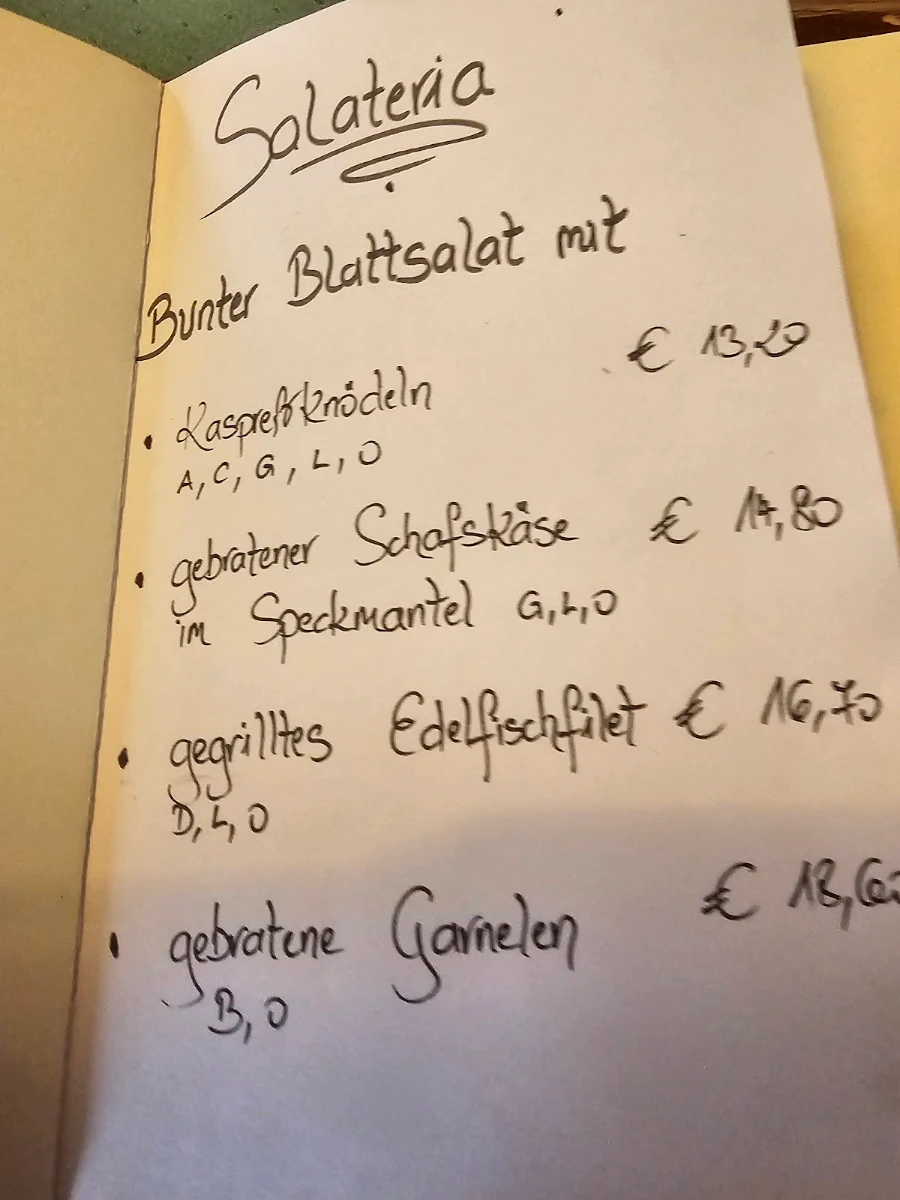 Salateria
Bunter Blattsalat mit
• Kaspreßknödeln € 13,20
A, C, G, L, O
• gebratener Schafskäse € 14,80
im Speckmantel G, L, O
• gegrilltes Edelfischfilet € 16,70
D, L, O
• gebratene Garnelen €
B, O